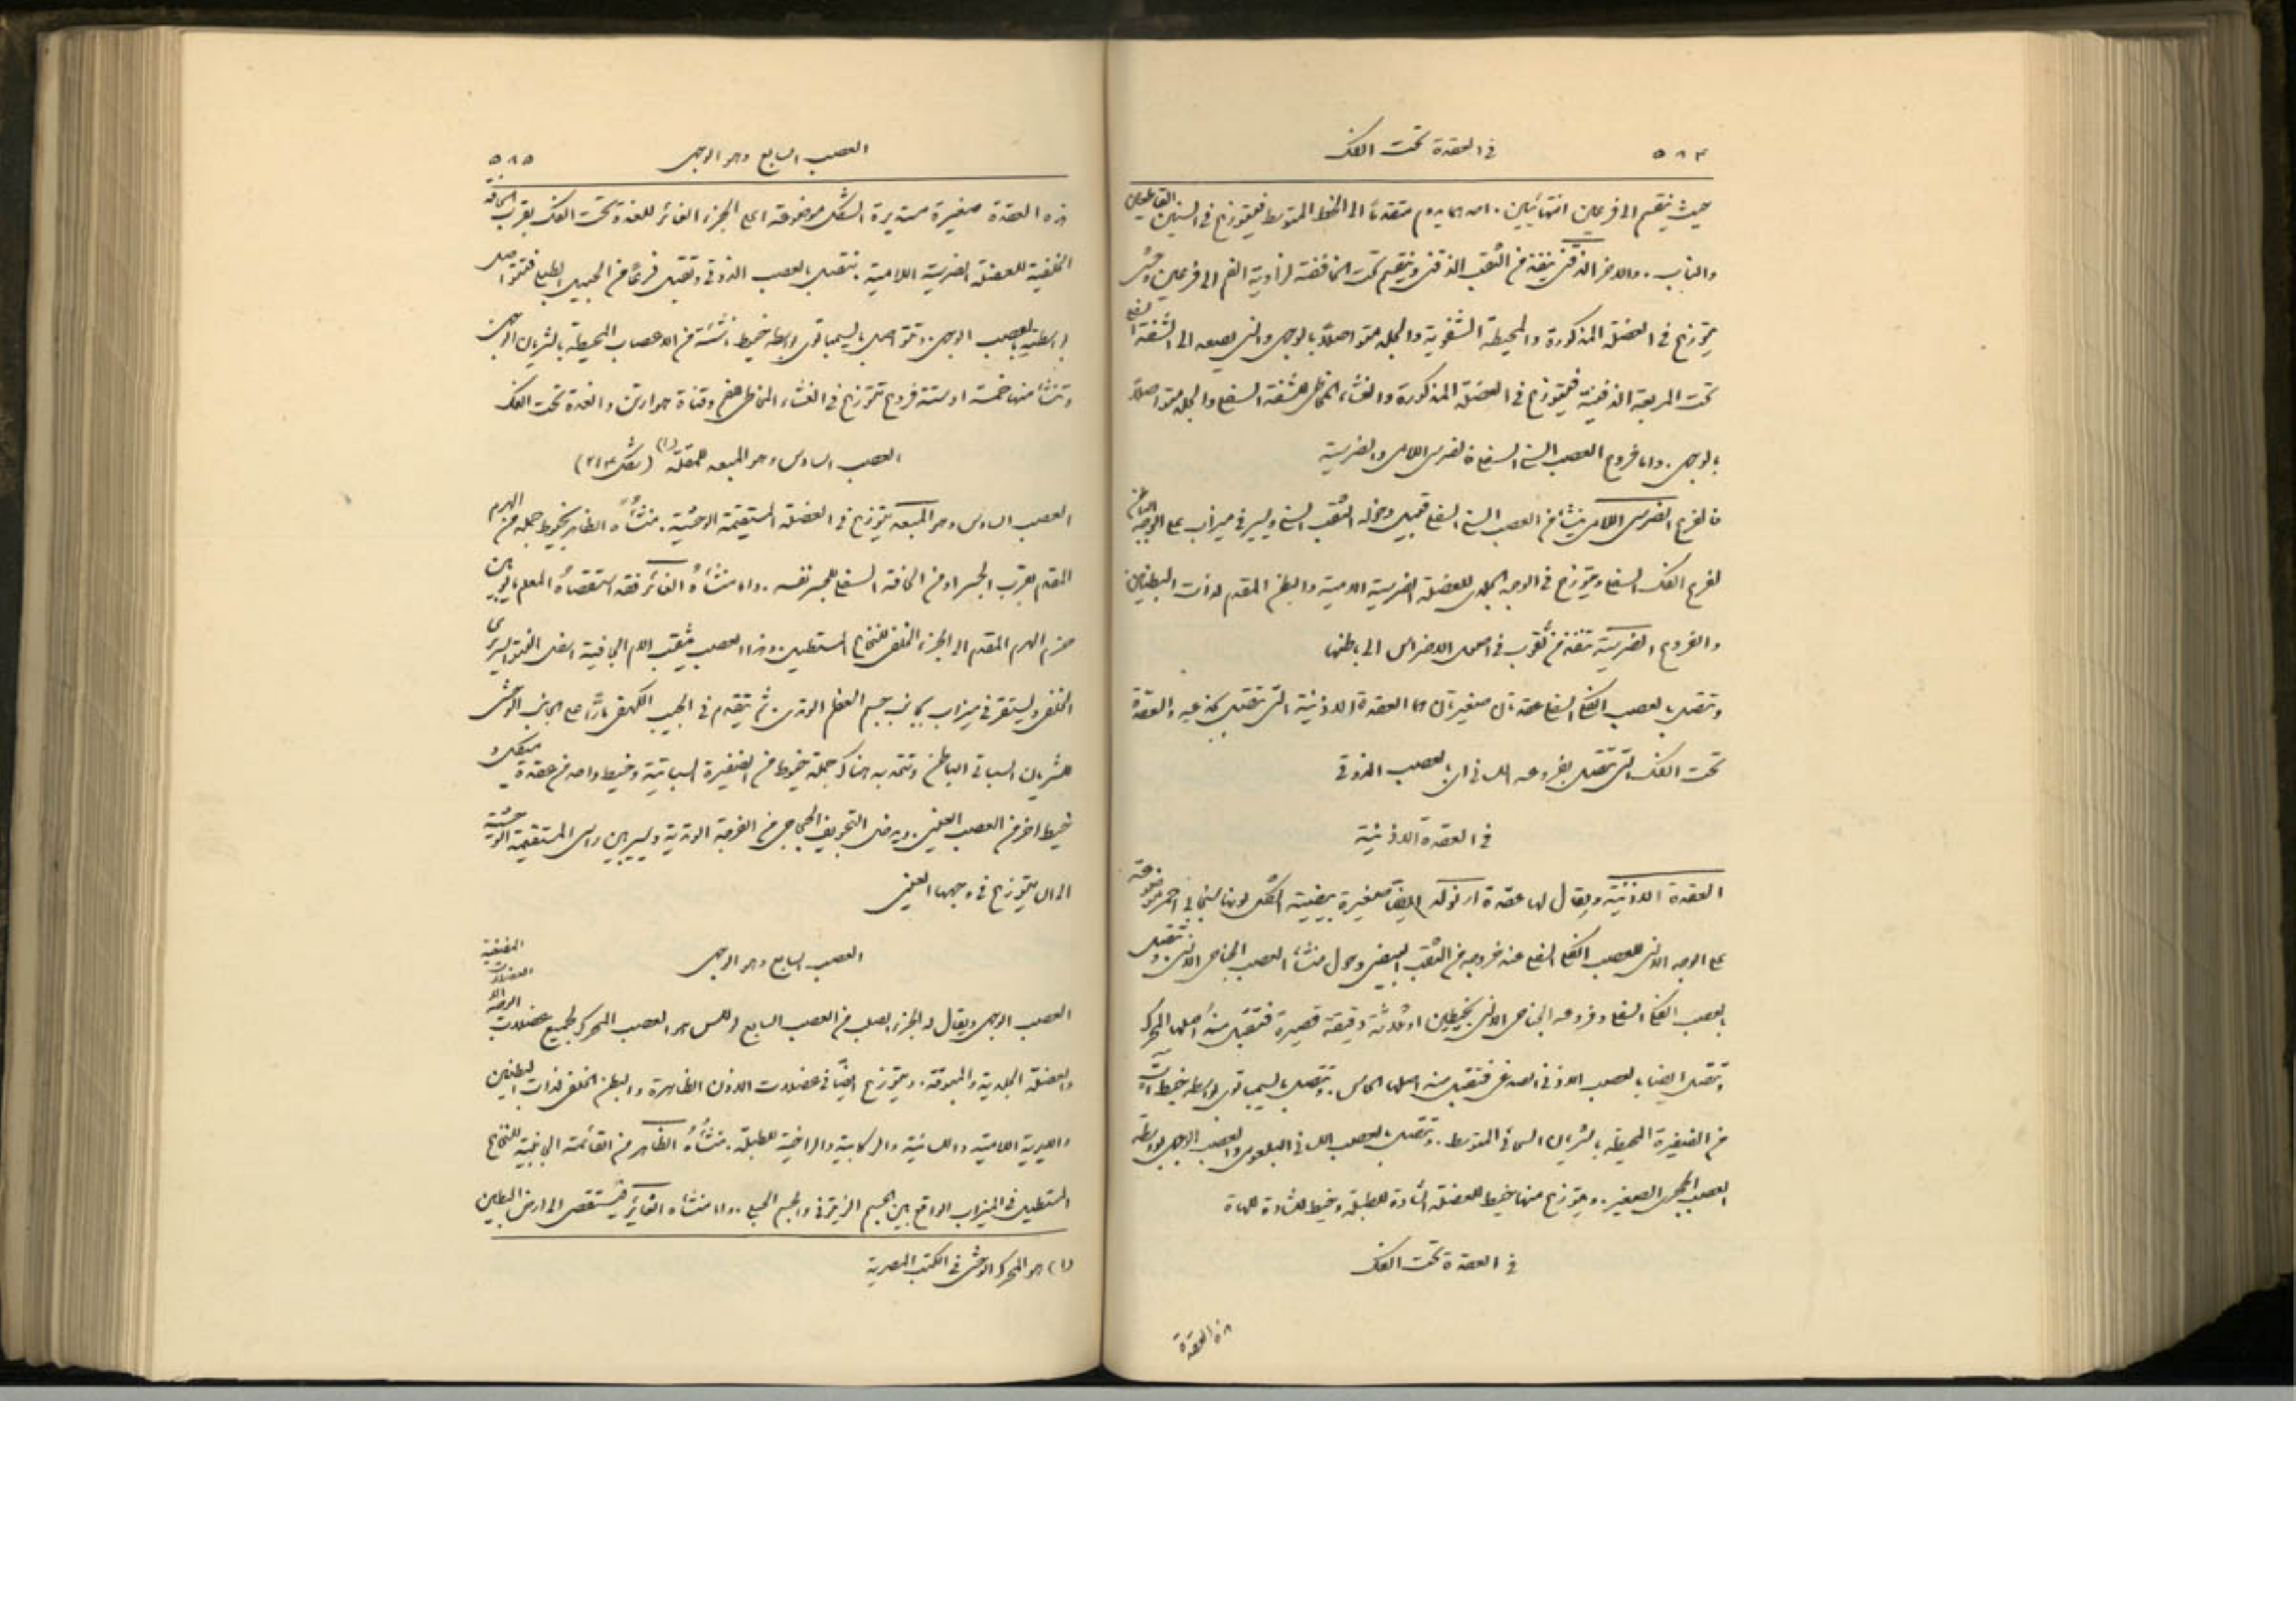 ٥٨٤ في العقدة تحت الفك
حيث ينقسم الى فرعين انتهائيين. احدهما يدوم متقدمًا الى الخط المتوسط فيتوزع في السنين القاطعين
والناب. والاخر الذقني ينفذ من الثقب الذقني وينقسم تحت الخافضة لزاوية الفم الى فرعين
يتوزع في العضلة المذكورة والمحيطة الشفوية والجلد متواصلاً بالوجهي والذي يصعد الى الشفة السفلى
تحت المربعة الذقنية فيتوزع في العضلة المذكورة والغشاء المخاطي للشفة السفلى والجلد متواصلاً
بالوجهي. واما فروع العصب السني السفلي فالضرسي اللامي والضرسية
فالفرع الضرسي اللامي ينشأ من العصب السني السفلي قبيل دخوله الثقب السني ويسير في ميزاب على الوجه الباطن
لفرع الفك السفلي ويتوزع في الوجه العلوي للعضلة الضرسية اللامية والبطن المقدم لذات البطنين
والفروع الضرسية تنفذ من ثقوب في اصول الاضراس الى باطنها
وتتصل بالعصب الفكي السفلي عقدتان صغيرتان هما العقدة الاذنية التي تتصل بجذعيه والعقدة
تحت الفك التي تتصل بفروعه اللساني اي بالعصب الذوقي
في العقدة الاذنية
العقدة الاذنية ويقال لها عقدة ارنولد ايضًا صغيرة بيضية الشكل لونها سنجابي احمر موضوعة
على الوجه الانسي للعصب الفكي السفلي عند خروجه من الثقب البيضي وحول منشأ العصب الجناحي الانسي. وتتصل
بالعصب الفكي السفلي وفروعه الجناحي الانسي بخيطين او ثلاثة دقيقة قصيرة فتقبل منه اصلها المحرك
وتتصل ايضًا بالعصب الاذني الصدغي فتقبل منه اصلها الحاس. وتتصل بالسيمباتوي بواسطة خيط آت
من الضفيرة المحيطة بالشريان السحائي المتوسط. وتتصل بالعصب اللساني البلعومي والعصب الوجهي بواسطة
العصب الحجري الصغير. ويتوزع منها خيط للعضلة الشادة للطبلة وخيط للشادة للهاة
في العقدة تحت الفك
هذه العقدة
العصب السابع وهو الوجهي ٥٨٥
هذه العقدة صغيرة مستديرة الشكل موضوعة اعلى الجزء الغائر للغدة تحت الفك بقرب الحافة
الخلفية للعضلة الضرسية اللامية. تتصل بالعصب الذوقي وتقبل فرعًا من الحبل الطبلي فتتواصل
بواسطته بالعصب الوجهي. وتتواصل بالسيمباتوي بواسطة خيط ناشئة من الاعصاب المحيطة بالشريان الوجهي
وتنشأ منها خمسة او ستة فروع تتوزع في الغشاء المخاطي للفم وقناة هوارتن والغدة تحت الفك
العصب السادس وهو المبعد للمقلة (١) (شكل ٢١٤)
العصب السادس وهو المبعد يتوزع في العضلة المستقيمة الوحشية. منشأه الظاهر بخيوط جملة من الهرم
المقدم بقرب الجسر او من الحافة السفلى للجسر نفسه. واما منشأه الغائر فقد استقصاه المعلم بين
حزم الهرم المقدم الى الجزء الخلفي للنخاع المستطيل. وهذا العصب يثقب الام الجافية اسفل النتوء السريري
الخلفي ويستقر في ميزاب بجانب جسم العظم الوتدي. ثم يتقدم في الجيب الكهفي مارًّا على الجانب الوحشي
للشريان السباتي الباطن وتتحد به هناك جملة خيوط من الضفيرة السباتية وخيط واحد من عقدة ميكل و
خيط اخر من العصب العيني. ويدخل التجويف الحجاجي من الفرجة الوتدية ويسير بين راسي المستقيمة الوحشية
الى ان يتوزع في وجهها العيني
العصب السابع وهو الوجهي
العصب الوجهي ويقال له الجزء الصلب من العصب السابع لولس هو العصب المحرك لجميع عضلات الوجه
والعضلة الجلدية والمبوقة. ويتوزع ايضًا في عضلات الاذن الظاهرة والبطن الخلفي لذات البطنين
والابرية اللامية واللسانية والركابية والراخية للطبلة. منشأه الظاهر من القائمة الجانبية للنخاع
المستطيل في الميزاب الواقع بين الجسم الزيتوني والجسم الحبلي. واما منشأه الغائر فيستقصى الى ارض البطين
(١) هو المحرك الوحشي في الكتب المصرية